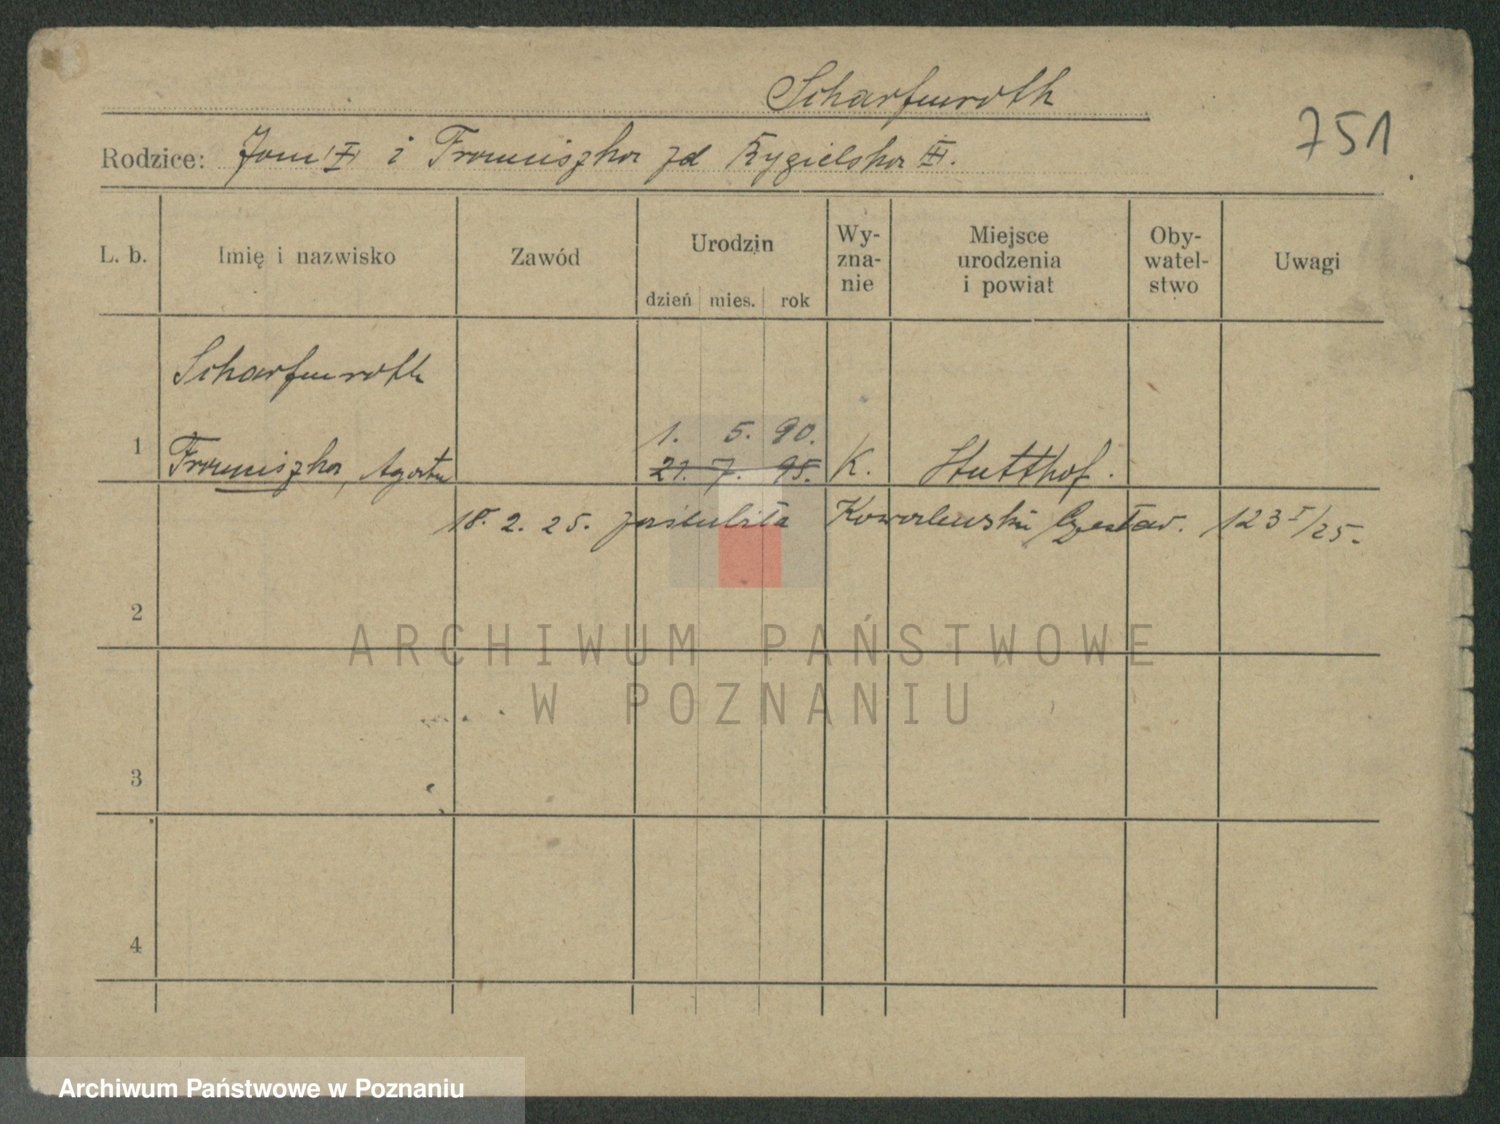 Scharfenroth
751
Rodzice: Jan I i Franciszka zd Rygielska III.
L. b. Imię i nazwisko Zawód Urodzin dzień mies. rok Wy-zna-nie Miejsce urodzenia i powiat Oby-watel-stwo Uwagi
Scharfenroth
1. 5. 90.
1 Franciszka, Agata 21. 7. 95. K. Stutthof.
18. 2. 25. zaślubiła Kowalewski Czesław. 123 I/25.
2
ARCHIWUM PAŃSTWOWE
W POZNANIU
3
4
Archiwum Państwowe w Poznaniu